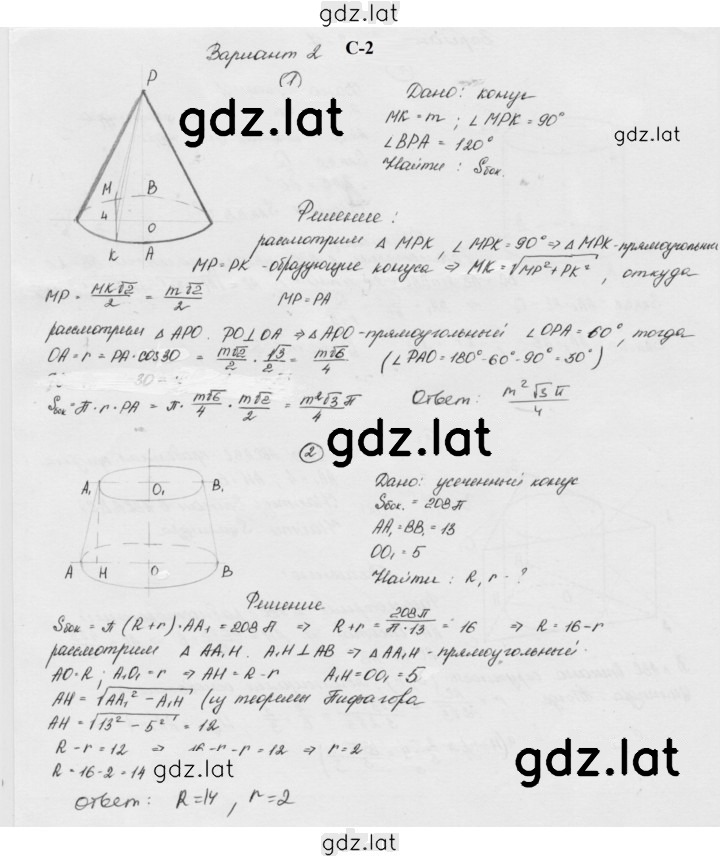 gdz.lat
Вариант 2 С-2
1
P
M B
4 O
K A
Дано: конус
MK = m ; ∠MPK = 90°
∠BPA = 120°
Найти : Sбок.
gdz.lat
gdz.lat
Решение :
рассмотрим △ MPK, ∠MPK = 90° ⇒ △MPK - прямоугольный
MP = PK - образующие конуса ⇒ MK = √MP² + PK² , откуда
MP = MK√2/2 = m√2/2 MP = PA
рассмотрим △ APO. PO⊥OA ⇒ △AOO - прямоугольный ∠OPA = 60°, тогда
OA = r = PA · cos30 = m√2/2 · √3/2 = m√6/4 (∠PAO = 180° - 60° - 90° = 30°)
Sбок = π · r · PA = π · m√6/4 · m√2/2 = m²√3/4 π Ответ: m²√3 π/4
gdz.lat
2
A₁ O₁ B₁
A H O B
Дано: усеченный конус
Sбок. = 208π
AA₁ = BB₁ = 13
OO₁ = 5
Найти : R, r - ?
Решение
Sбок = π (R + r) · AA₁ = 208π ⇒ R + r = 208π/π · 13 = 16 ⇒ R = 16 - r
рассмотрим △ AA₁H. A₁H ⊥ AB ⇒ △AA₁H - прямоугольный.
AO = R ; A₁O₁ = r ⇒ AH = R - r A₁H = OO₁ = 5
AH = √AA₁² - A₁H (из теоремы Пифагора
AH = √13² - 5² = 12
R - r = 12 ⇒ 16 - r - r = 12 ⇒ r = 2
R = 16 - 2 = 14
gdz.lat
gdz.lat
Ответ: R = 14 , r = 2
gdz.lat